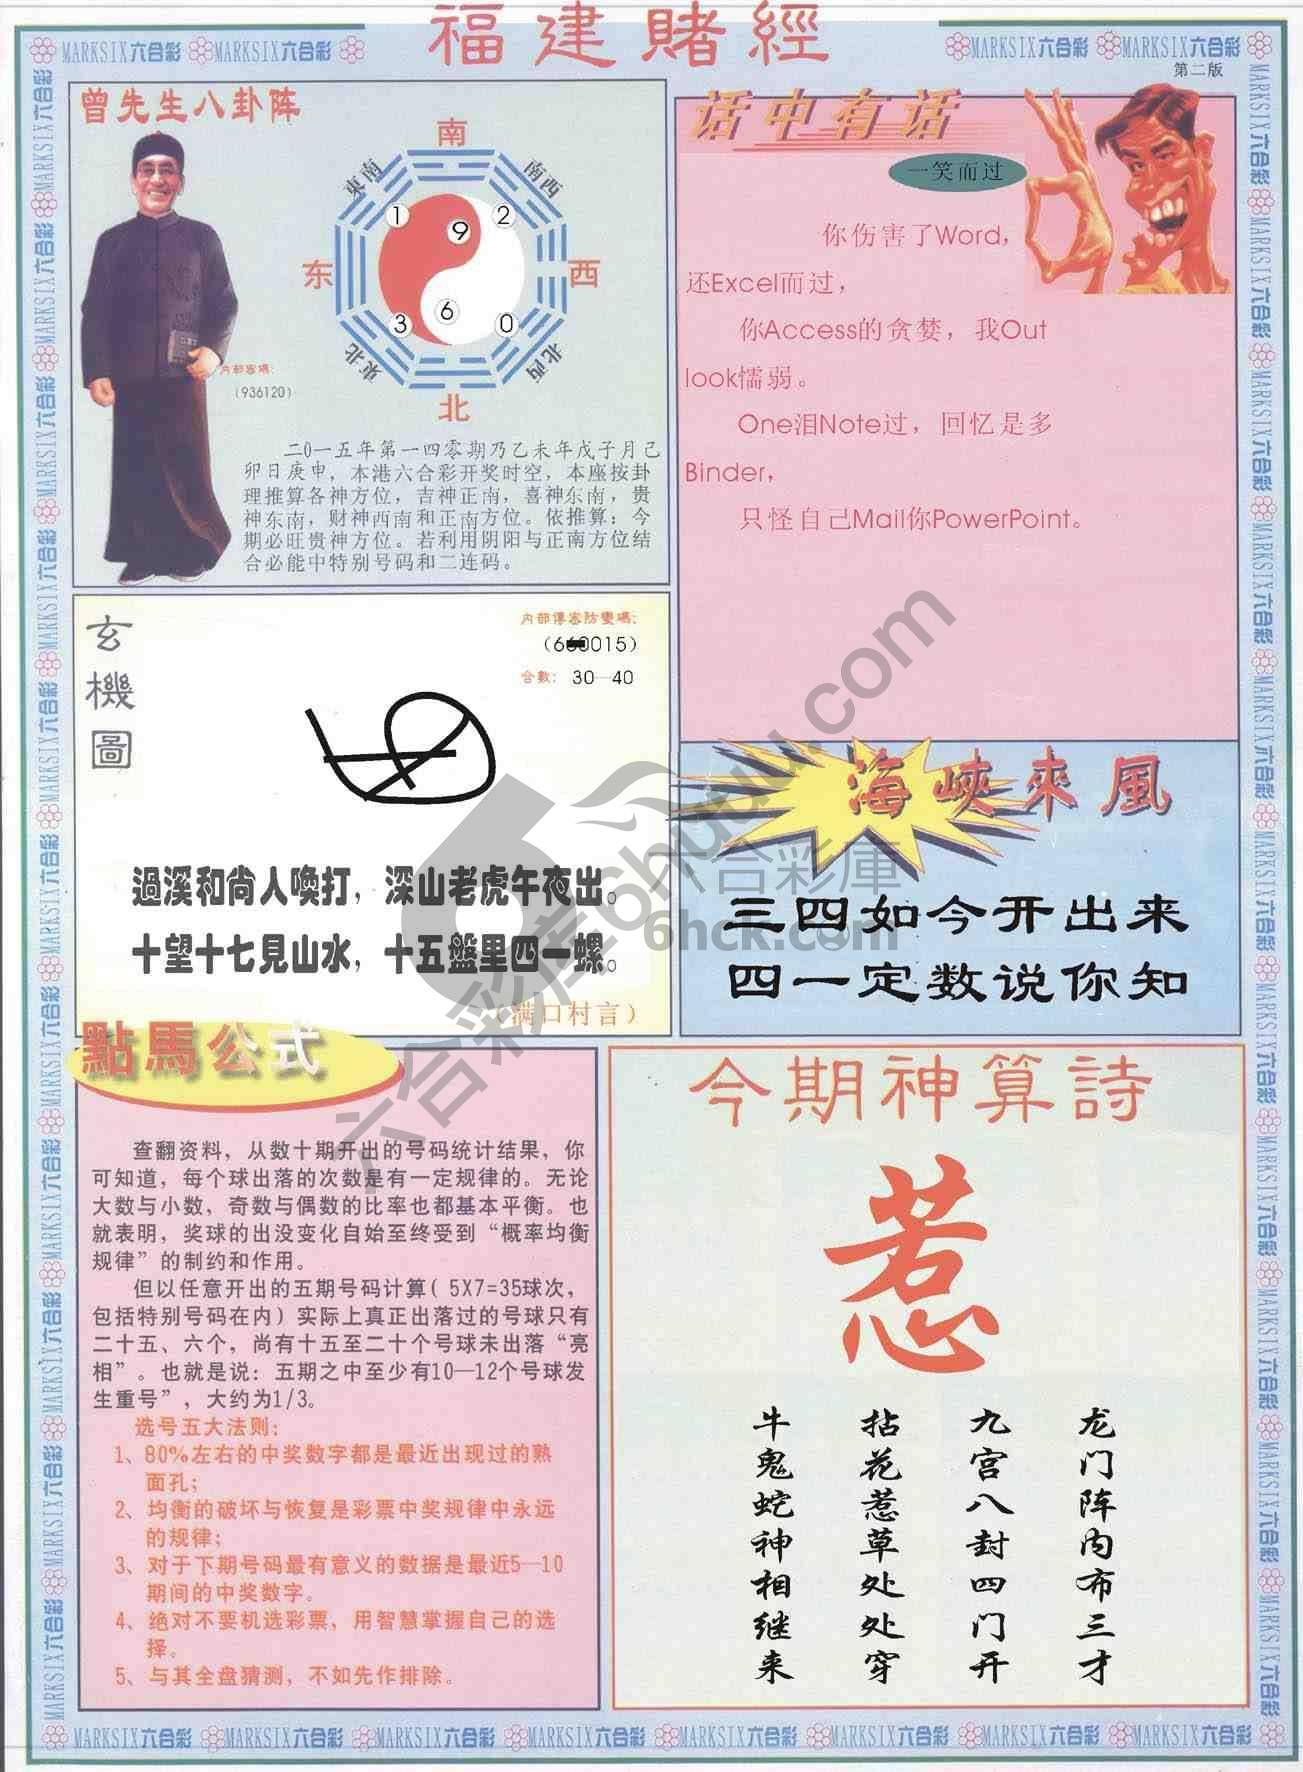 福建賭經
MARKSIX六合彩 MARKSIX六合彩
MARKSIX六合彩 MARKSIX六合彩
第二版
曾先生八卦阵
南
東南
南西
1
9
2
东
西
3
6
0
東北
北西
北
内部密碼:
(936120)
二0一五年第一四零期乃乙未年戊子月己
卯日庚申，本港六合彩开奖时空，本座按卦
理推算各神方位，吉神正南，喜神东南，贵
神东南，财神西南和正南方位。依推算：今
期必旺贵神方位。若利用阴阳与正南方位结
合必能中特别号码和二连码。
话中有话
一笑而过
你伤害了Word，
还Excel而过，
你Access的贪婪，我Out
look懦弱。
One泪Note过，回忆是多
Binder，
只怪自己Mail你PowerPoint。
玄機圖
内部傳密防變碼:
0015)
合數: 30—40
過溪和尚人喚打，深山老虎午夜出。
十望十七見山水，十五盤里四一螺。
(满口村言)
海峽來風
三四如今开出来
四一定数说你知
點馬公式
查翻资料，从数十期开出的号码统计结果，你
可知道，每个球出落的次数是有一定规律的。无论
大数与小数，奇数与偶数的比率也都基本平衡。也
就表明，奖球的出没变化自始至终受到“概率均衡
规律”的制约和作用。
但以任意开出的五期号码计算( 5X7=35球次，
包括特别号码在内）实际上真正出落过的号球只有
二十五、六个，尚有十五至二十个号球未出落“亮
相”。也就是说：五期之中至少有10—12个号球发
生重号”，大约为1/3。
选号五大法则：
1、80%左右的中奖数字都是最近出现过的熟
面孔；
2、均衡的破坏与恢复是彩票中奖规律中永远
的规律；
3、对于下期号码最有意义的数据是最近5—10
期间的中奖数字。
4、绝对不要机选彩票，用智慧掌握自己的选
择。
5、与其全盘猜测，不如先作排除。
今期神算詩
惹
龙门阵内布三才
九宫八封四门开
拈花惹草处处穿
牛鬼蛇神相继来
六合彩库6hquu.com
六合彩庫
6hck.com
MARKSIX六合彩 MARKSIX六合彩 MARKSIX六合彩 MARKSIX六合彩 MARKSIX六合彩 MARKSIX六合彩 MARKSIX六合彩 MARKSIX六合彩